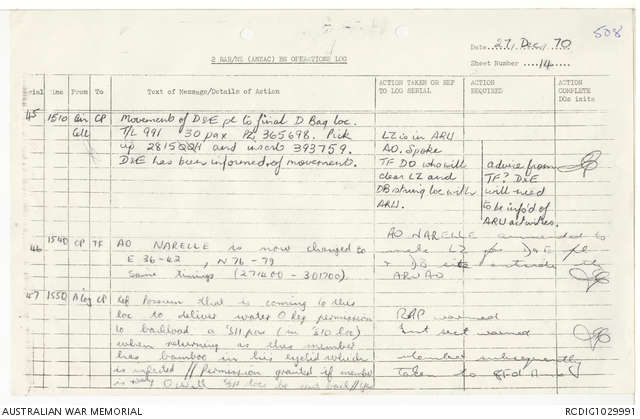 508
Date 27 Dec 70
2 RAR/NZ (ANZAC) BN OPERATIONS LOG
Sheet Number 14
Serial Time From To Text of Message/Details of Action ACTION TAKEN OR REF TO LOG SERIAL ACTION REQUIRED ACTION COMPLETE DOs inits
45 1510 CP Movement of D&E pl to final D Bag loc.
T/L 991 30 pax PZ 365698. Pick
up 281500H and insert 393759.
D&E has been informed of movement.
LZ is in ARU
AO. Spoke
TF DO who will
clear LZ and
DB string loc with
ARU.
advice from
TF? D&E
will need
to be info'd of
ARU activities.
46 1540 CP TF AO NARELLE is now changed to
E 36-42, N 76-79
Same timings (271400 - 301700).
AO NARELLE amended to
make LZ for D&E pl
ARU AO
47 1550 A Log CP Ref Possum that is coming to this
loc to deliver water O req permission
to backload a
when returning as this member
has bamboo in his eyelid which
is infected // Permission granted if member
is
RAP warned
Int sect warned
Member subsequently
taken to 8 Fd Amb
AUSTRALIAN WAR MEMORIAL
RCDIG1029991